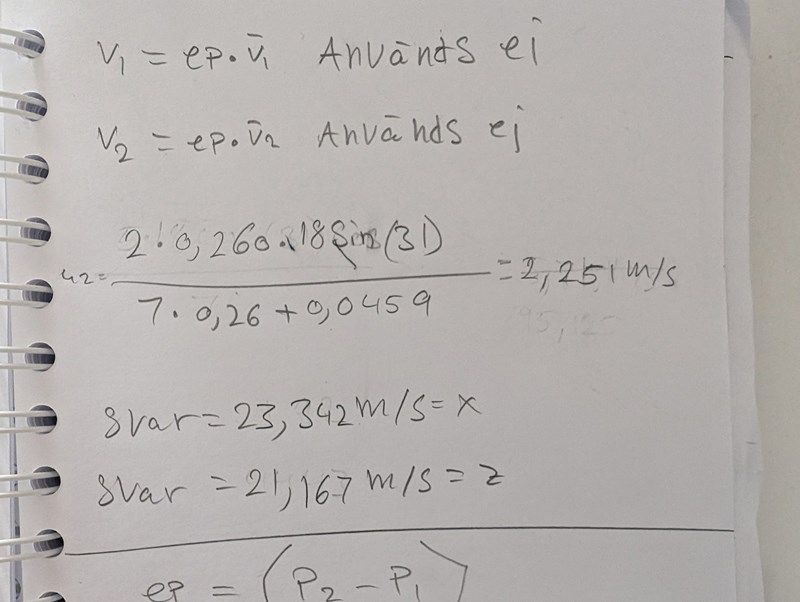 V₁ = ep · v̄₁ Används ej
V₂ = ep · v̄₂ Används ej
2 · 0,260 · 18 Sin(31)
u₂ = ――― = 2,251 m/s
7 · 0,26 + 0,0459
Svar = 23,342 m/s = x
Svar = 21,167 m/s = z
ep = (P₂ - P₁)